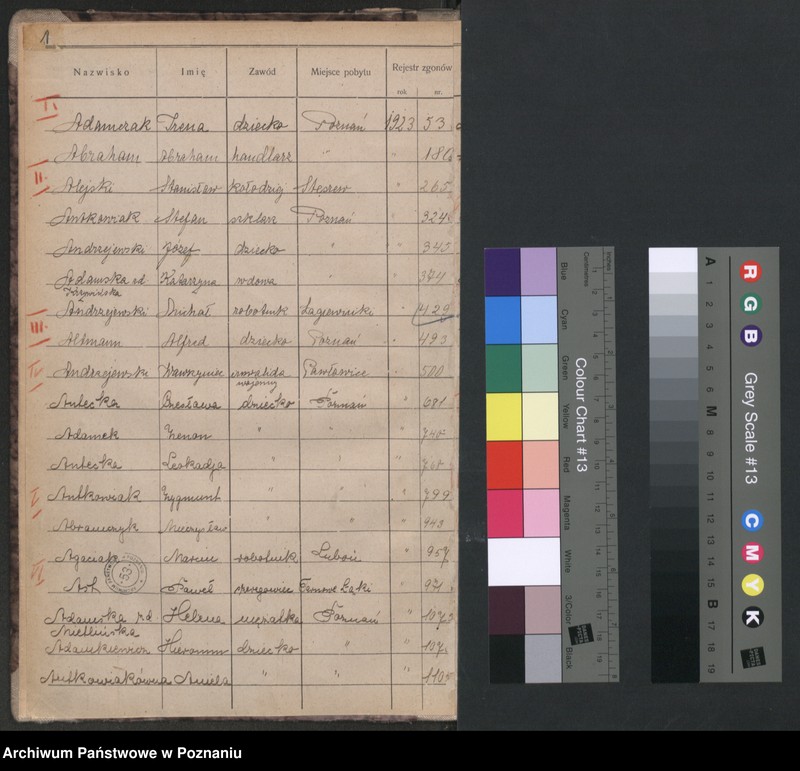 1
Nazwisko Imię Zawód Miejsce pobytu Rejestr zgonów
rok nr.
I Adamczak Irena dziecko Poznań 1923 53
Abraham Abraham handlarz " "
II Alejski Stanisław kołodziej Stęszew " 265
Antkowiak Stefan szklarz Poznań 324
Andrzejewski Józef dziecko " " 345
Adamska Katarzyna wdowa " " 374
Andrzejewski Michał robotnik Łagiewniki " 429
III Altmann Alfred dziecko Poznań " 493
IV Andrzejewski Wawrzyniec inwalida Pawłowice " 500
wojenny
Antecka Bresława dziecko Poznań " 681
Adamek Zenon " " "
Antecka Leokadja " " "
V Antkowiak Zygmunt " " " 799
Abramczyk Mieczysław " " " 943
Marcin robotnik Luboń " 957
VI Paweł Tarnowo Łąki "
Adamska Helena mężatka Poznań "
Hieronim dziecko " "
Antkowiakówna Aniela " " " 1105
Archiwum Państwowe w Poznaniu
Colour Chart #13
Blue Cyan Green Yellow Red Magenta White 3/Color Black
Centimetres Inches
Grey Scale #13
R G B C M Y K
A 1 2 3 4 5 6 M 8 9 10 11 12 13 14 15 B 17 18 19